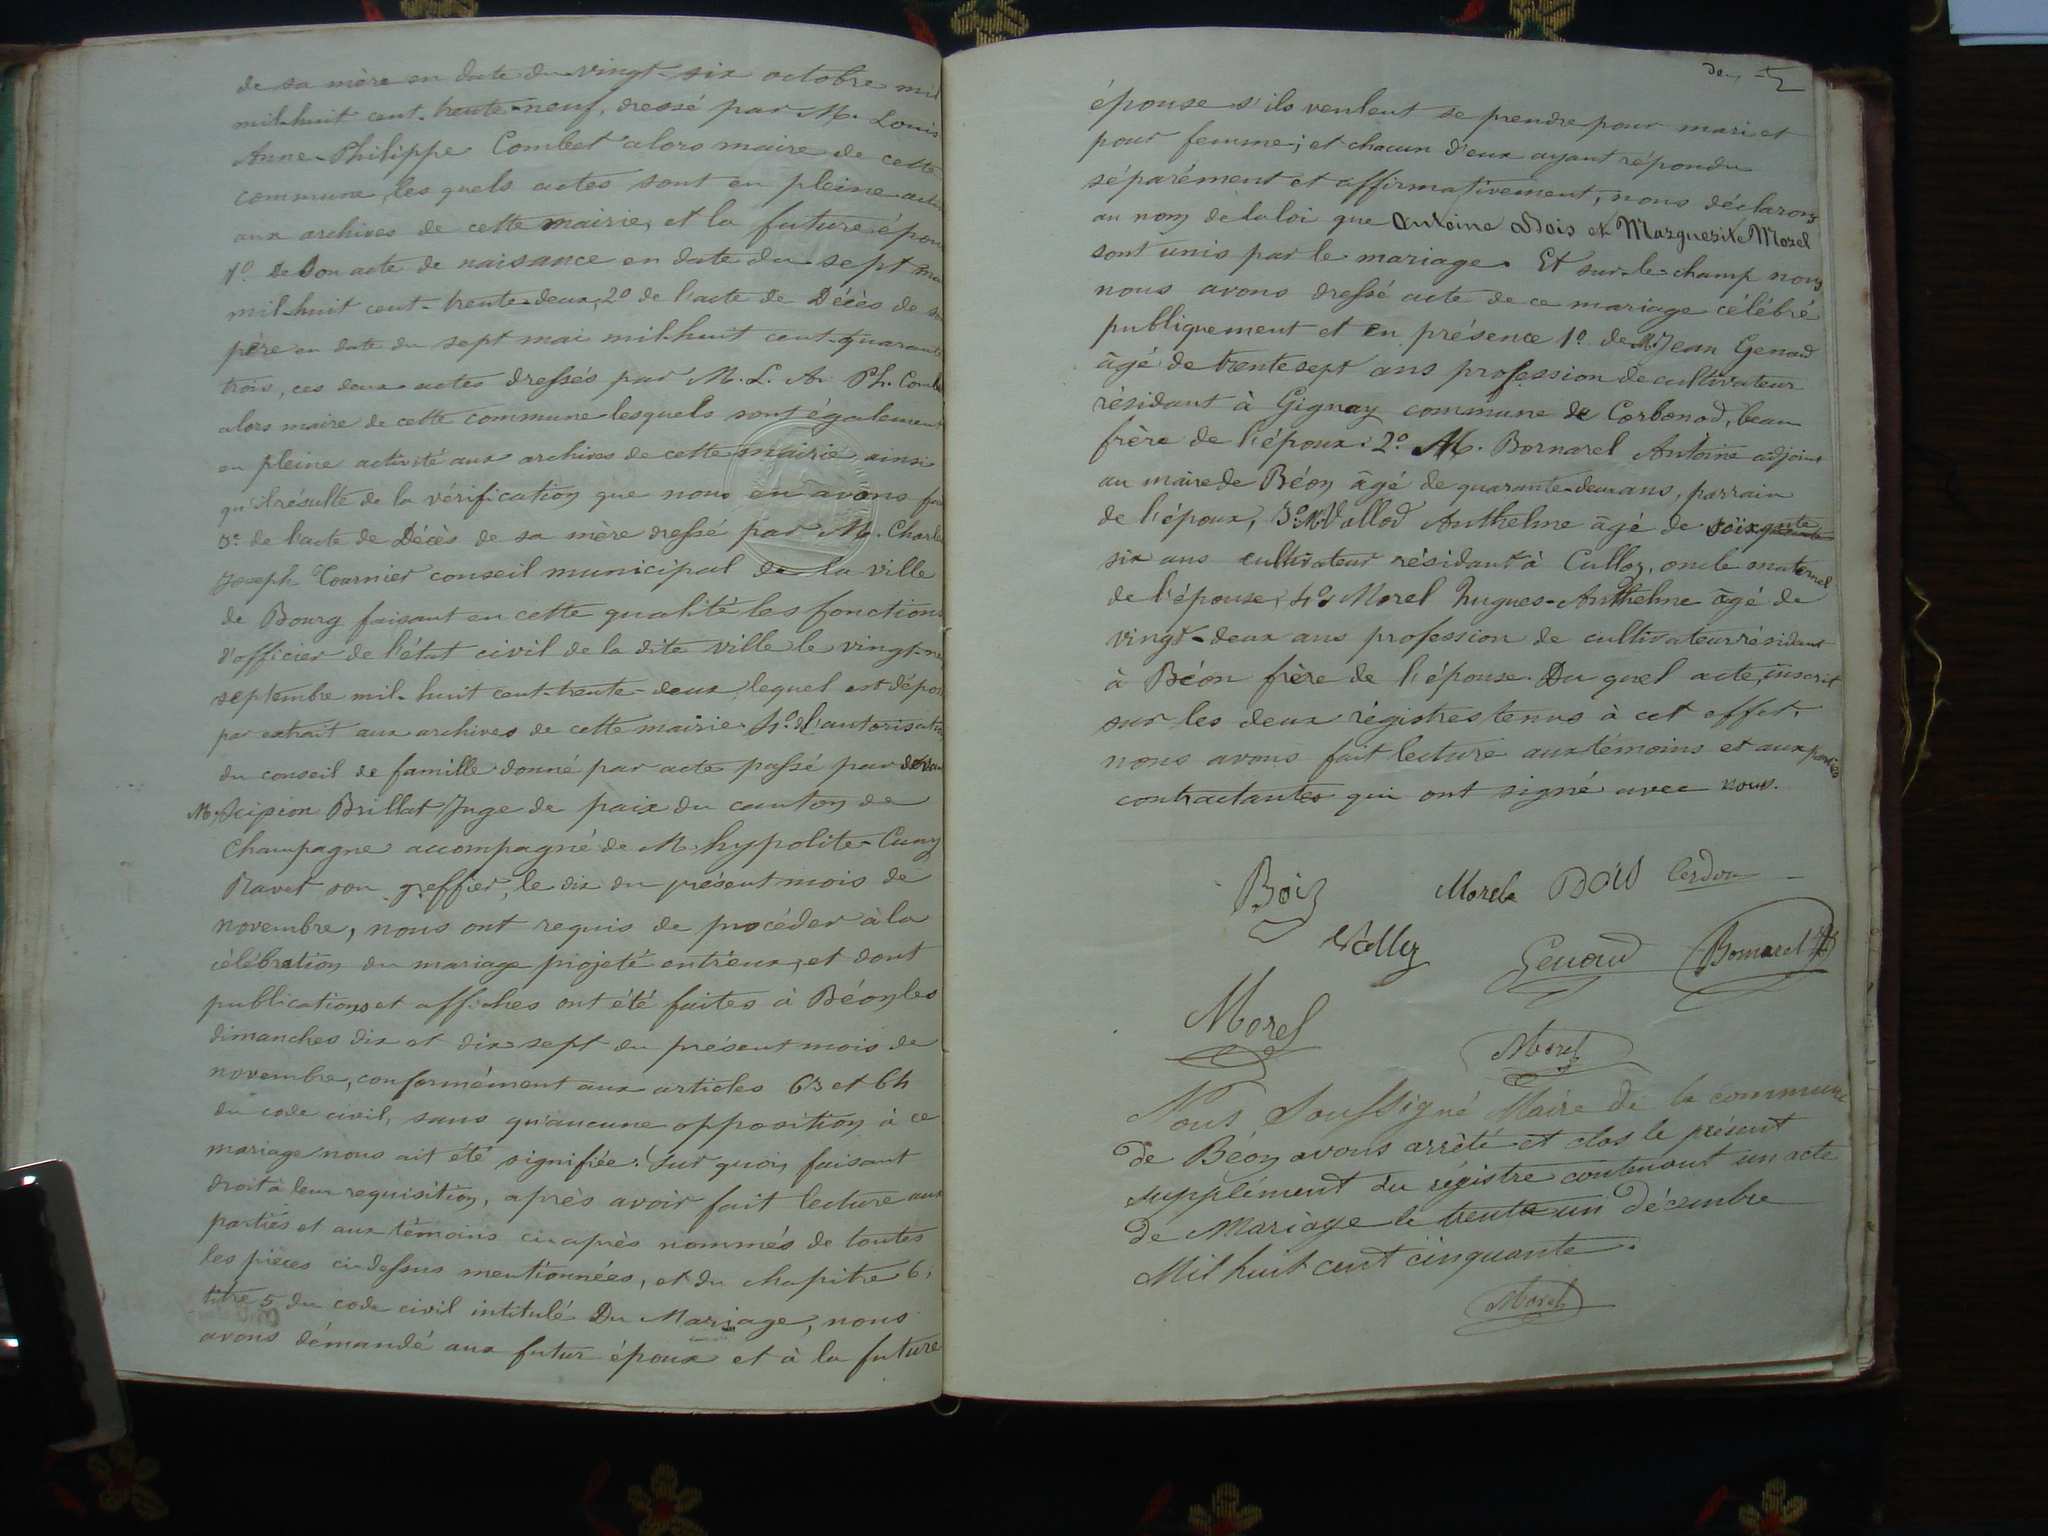 de sa mère en date du vingt-six octobre mil
mil-huit cent-trente-neuf, dressé par M. Louis
Anne-Philippe Combet alors maire de cette
commune, lesquels actes sont en pleine
aux archives de cette mairie, et la future épou
1º de son acte de naissance en date du sept
mil-huit cent-trente-deux, 2º de l'acte de Décès de
père en date du sept mai mil-huit cent-quarante
trois, ces deux actes dressés par M. L. A. Ph. Combe
alors maire de cette commune lesquels sont également
en pleine activité aux archives de cette mairie ainsi
qu'il résulte de la vérification que nous en avons
3º de l'acte de Décès de sa mère dressé par M. Charle
Joseph Tournier conseil municipal de la ville
de Bourg faisant en cette qualité les fonctions
d'officier de l'état civil de la dite ville le vingt-
septembre mil-huit cent-trente-deux, lequel est dépo
par extrait aux archives de cette mairie. 4º de l'autorisation
du conseil de famille donné par acte passé par devan
M. Scipion Brillat Juge de paix du canton de
Champagne accompagné de M. hypolite-Cuny
Ravet son greffier, le dix du présent mois de
novembre, nous ont requis de procéder à la
célébration du mariage projeté entr'eux, et dont
publications et affiches ont été faites à Béon les
dimanches dix et dix-sept du présent mois de
novembre, conformément aux articles 63 et 64
du code civil, sans qu'aucune opposition à ce
mariage nous ait été signifiée. Sur quoi, faisant
droit à leur requisition, après avoir fait lecture aux
parties et aux témoins ci-après nommés de toutes
les pièces ci-dessus mentionnées, et du chapitre 6,
titre 5 du code civil intitulé Du Mariage, nous
avons démandé aux futur époux et à la future
épouse s'ils veulent se prendre pour mari et
pour femme; et chacun d'eux ayant répondu
séparément et affirmativement, nous déclarons
au nom de la loi que Antoine Bois et Marguerite Morel
sont unis par le mariage. Et sur-le-champ nous
nous avons dressé acte de ce mariage célébré
publiquement et en présence 1º de M. Jean Genoud
âgé de trente sept ans profession de cultivateur
résidant à Gignay commune de Corbonod, beau
frère de l'époux. 2º M. Bornarel Antoine adjoint
au maire de Béon âgé de quarante-deux ans, parrain
de l'époux, 3º M. Vallod Anthelme âgé de soixante
six ans cultivateur résidant à Culloz, oncle maternel
de l'épouse, 4º Morel hugues-Anthelme âgé de
vingt-deux ans profession de cultivateur résidant
à Béon frère de l'épouse. Du quel acte, inscrit
sur les deux régistres tenus à cet effet,
nous avons fait lecture aux témoins et aux parties
contractantes qui ont signé avec nous.
Bois Morel Bois Cerdon
Genoud Bornarel
Morel Morel
Nous Soussigné Maire de la commune
de Béon avons arrêté et clos le présent
supplément du régistre contenant un acte
de Mariage le trente un décembre
Mil huit cent cinquante.
Morel